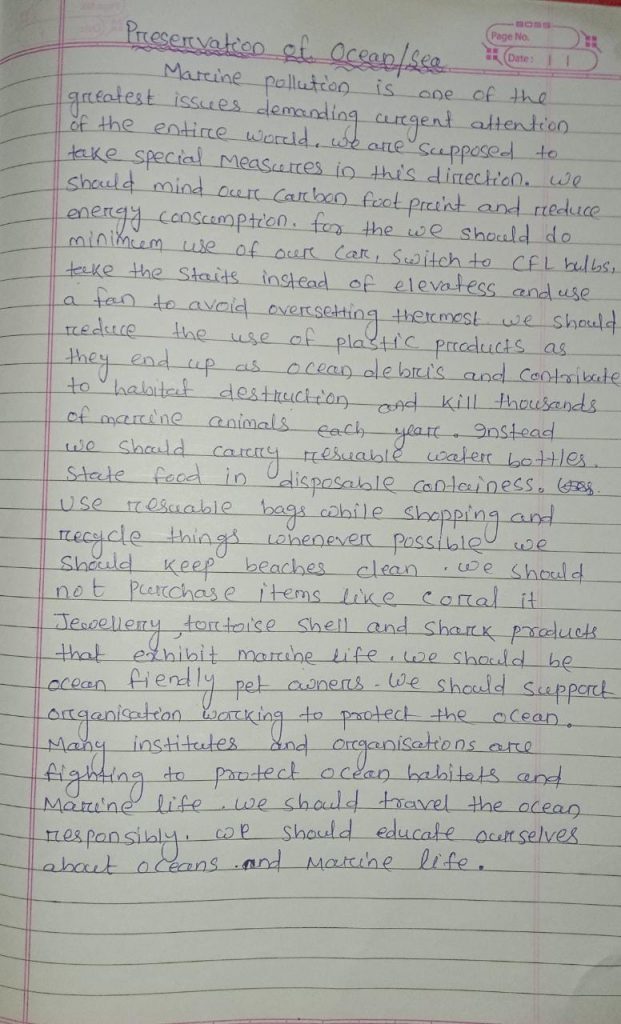 BOSS
Page No.
Date:
Preservation of Ocean/Sea
Marine pollution is one of the
greatest issues demanding urgent attention
of the entire world. we are supposed to
take special measures in this direction. we
should mind our carbon foot print and reduce
energy consumption. for the we should do
minimum use of our car, switch to CFL bulbs,
take the staits instead of elevatess and use
a fan to avoid oversetting thermost we should
reduce the use of plastic products as
they end up as ocean debris and contribute
to habitat destruction and kill thousands
of marine animals each year. Instead
we should carry resuable water bottles.
State food in disposable containess.
use resuable bags while shopping and
recycle things whenever possible we
should keep beaches clean. we should
not purchase items like corral it
Jewellery, tortoise shell and shark products
that exhibit marine life. we should be
ocean fiendly pet owners. We should support
organisation working to protect the ocean.
Many institutes and organisations are
fighting to protect ocean habitats and
Marine life. we should travel the ocean
responsibly. we should educate ourselves
about oceans and marine life.